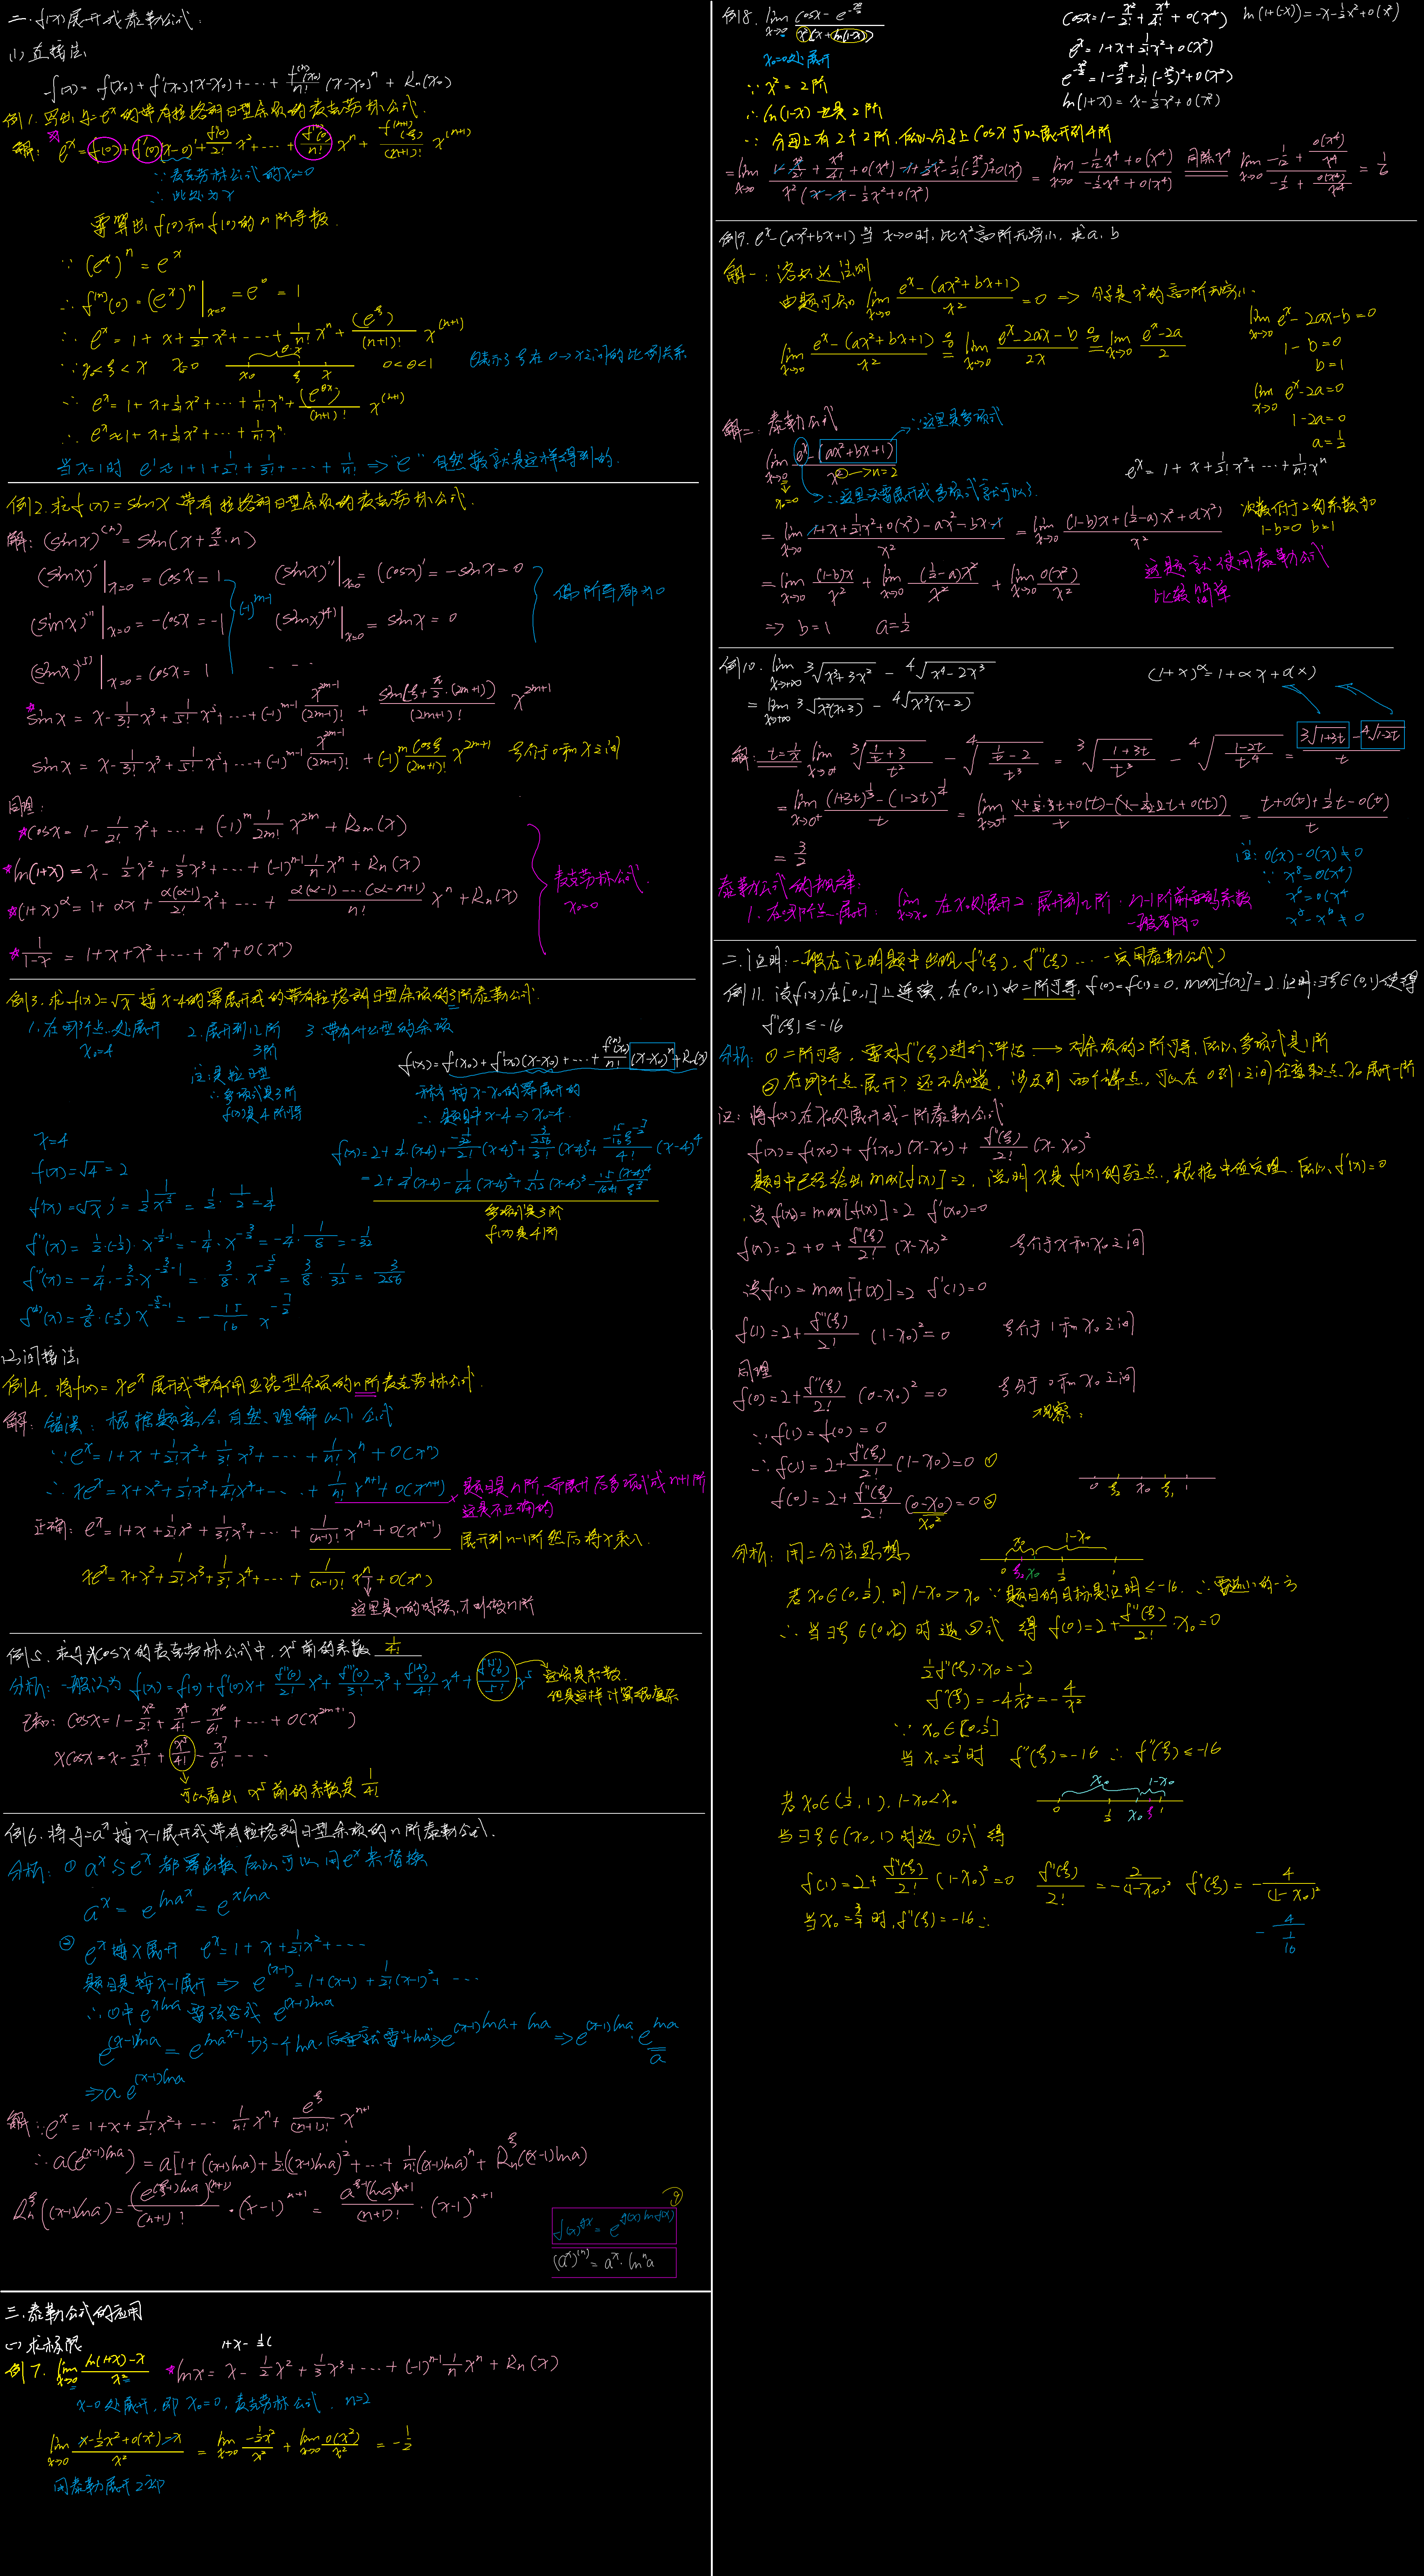 二. f(x)展开成泰勒公式:
(1) 直接法
f(x) = f(x₀) + f'(x₀)(x-x₀) + ⋯ + f⁽ⁿ⁾(x₀)/n! (x-x₀)ⁿ + Rₙ(x₀)
例1. 写出 y=eˣ 的带有拉格朗日型余项的麦克劳林公式.
解: eˣ = f(0) + f'(0)(x-0) + f''(0)/2! x² + ⋯ + f⁽ⁿ⁾(0)/n! xⁿ + f⁽ⁿ⁺¹⁾(ξ)/(n+1)! x⁽ⁿ⁺¹⁾
∵ 麦克劳林公式的x₀=0
∴ 此处为x
需算出 f(0)和f(0)的n阶导数.
∵ (eˣ)ⁿ = eˣ
∴ f⁽ⁿ⁾(0) = (eˣ)ⁿ|x=0 = e⁰ = 1
∴ eˣ = 1 + x + 1/2! x² + ⋯ + 1/n! xⁿ + (e^ξ)/(n+1)! x⁽ⁿ⁺¹⁾
∵ x₀<ξ<x x₀=0 θ·x x₀ ξ x 0<θ<1 θ表示了ξ在0→x之间的比例关系
∴ eˣ = 1 + x + 1/2! x² + ⋯ + 1/n! xⁿ + (e^θx)/(n+1)! x⁽ⁿ⁺¹⁾
∴ eˣ ≈ 1 + x + 1/2! x² + ⋯ + 1/n! xⁿ
当x=1时 e¹ ≈ 1+1+1/2!+1/3!+⋯+1/n! ⇒ "e" 自然数就是这样得到的.
例2. 求 f(x) = sinx 带有拉格朗日型余项的麦克劳林公式.
解: (sinx)⁽ⁿ⁾ = sin(x + π/2·n)
(sinx)'|x=0 = cosx = 1 (sinx)''|x=0 = (cosx)' = -sinx = 0
(-1)^m-1 偶阶导都为0
(sinx)'''|x=0 = -cosx = -1 (sinx)⁽⁴⁾|x=0 = sinx = 0
(sinx)⁽⁵⁾|x=0 = cosx = 1 ---
sinx = x - 1/3! x³ + 1/5! x⁵ + ⋯ + (-1)^m-1 x^2m-1/(2m-1)! + sin[ξ+π/2·(2m+1)]/(2m+1)! x^2m+1
sinx = x - 1/3! x³ + 1/5! x⁵ + ⋯ + (-1)^m-1 x^2m-1/(2m-1)! + (-1)^m cosξ/(2m+1)! x^2m+1 ξ介于0和x之间
同理:
cosx = 1 - 1/2! x² + ⋯ + (-1)^m 1/2m! x^2m + R₂ₘ(x)
ln(1+x) = x - 1/2 x² + 1/3 x³ + ⋯ + (-1)^n-1 1/n xⁿ + Rₙ(x)
(1+x)^α = 1 + αx + α(α-1)/2! x² + ⋯ + α(α-1)⋯(α-n+1)/n! xⁿ + Rₙ(x)
麦克劳林公式. x₀=0
1/(1-x) = 1 + x + x² + ⋯ + xⁿ + o(xⁿ)
例3. 求 f(x) = √x 按x-4的幂展开成的带有拉格朗日型余项的3阶泰勒公式.
1. 在哪个点处展开 2. 展开到几阶 3. 带有什么型的余项
x₀=4 3阶
f(x) = f(x₀) + f'(x₀)(x-x₀) + ⋯ + f⁽ⁿ⁾(x₀)/n! (x-x₀)ⁿ + Rₙ(x)
注: 是拉日型
∴ 多项式是3阶
f(x)是4阶导
称为按x-x₀的幂展开的
∴ 题目中x-4 ⇒ x₀=4.
x=4
f(x) = √4 = 2
f(x) = 2 + 1/4·(x-4) + -1/32/2! (x-4)² + 3/256/3! (x-4)³ + -15/16 ξ^-7/2/4! (x-4)⁴
= 2 + 1/4(x-4) - 1/64(x-4)² + 1/512(x-4)³ - 15(x-4)⁴/16·4! ξ^7/2
多项式是3阶
f(x)是4阶
f'(x) = (√x)' = 1/2 x^-1/2 = 1/2·1/2 = 1/4
f''(x) = 1/2·(-1/2)·x^-1/2-1 = -1/4·x^-3/2 = -1/4·1/8 = -1/32
f'''(x) = -1/4·-3/2·x^-3/2-1 = 3/8·x^-5/2 = 3/8·1/32 = 3/256
f⁽⁴⁾(x) = 3/8·(-5/2) x^-5/2-1 = -15/16 x^-7/2
(2) 间接法
例4. 将f(x) = xeˣ 展开成带有佩亚诺型余项的n阶麦克劳林公式.
解: 错误: 根据题意会自然理解以下公式
∵ eˣ = 1 + x + 1/2! x² + 1/3! x³ + ⋯ + 1/n! xⁿ + o(xⁿ)
∴ xeˣ = x + x² + 1/2! x³ + 1/4! x⁴ + ⋯ + 1/n! xⁿ⁺¹ + o(xⁿ⁺¹) 题目是n阶, 而展开后多项式成n+1阶
这是不正确的
正确: eˣ = 1 + x + 1/2! x² + 1/3! x³ + ⋯ + 1/(n-1)! xⁿ⁻¹ + o(xⁿ⁻¹) 展开到n-1阶然后将x乘入.
xeˣ = x + x² + 1/2! x³ + 1/3! x⁴ + ⋯ + 1/(n-1)! xⁿ + o(xⁿ)
这里是n的时候, 才叫做n阶
例5. 求y=xcosx的麦克劳林公式中, x⁵前的系数 1/4!
分析: 一般认为 f(x) = f(0) + f'(0)x + f''(0)/2! x² + f'''(0)/3! x³ + f⁽⁴⁾(0)/4! x⁴ + f⁽⁵⁾(0)/5! x⁵ 这项是系数. 但是这样计算很复杂
已知: cosx = 1 - x²/2! + x⁴/4! - x⁶/6! + ⋯ + o(x^2m+1)
xcosx = x - x³/2! + x⁵/4! - x⁷/6! ⋯
可以看出 x⁵前的系数是 1/4!
例6. 将y=aˣ按x-1展开成带有拉格朗日型余项的n阶泰勒公式.
分析: ① aˣ与eˣ都幂函数 所以可以用eˣ来替换
aˣ = e^lnaˣ = e^xlna
② eˣ按x展开 eˣ = 1 + x + 1/2! x² + ⋯
题目是按x-1展开 ⇒ e^(x-1) = 1 + (x-1) + 1/2! (x-1)² + ⋯
∴ ①中e^xlna 要改写成 e^(x-1)lna
e^(x-1)lna = e^lna^x-1 少了一个lna, 后面就需"+lna" ⇒ e^(x-1)lna + lna ⇒ e^(x-1)lna · e^lna
a
⇒ a e^(x-1)lna
解: ∵ eˣ = 1 + x + 1/2! x² + ⋯ 1/n! xⁿ + e^ξ/(n+1)! xⁿ⁺¹
∴ a(e^(x-1)lna) = a[1 + ((x-1)lna) + 1/2((x-1)lna)² + ⋯ + 1/n!((x-1)lna)ⁿ + Rₙ^ξ((x-1)lna)
Rₙ^ξ((x-1)lna) = (e^(ξ-1)lna)⁽ⁿ⁺¹⁾/(n+1)! · (x-1)ⁿ⁺¹ = a^ξ-1(lna)ⁿ⁺¹/(n+1)! · (x-1)ⁿ⁺¹
f(x)^g(x) = e^g(x)lnf(x)
(aˣ)⁽ⁿ⁾ = aˣ·lnⁿa
三. 泰勒公式的应用
(一) 求极限 1+x-
例7. lim x→0 ln(1+x)-x/x² lnx = x - 1/2 x² + 1/3 x³ + ⋯ + (-1)^n-1 1/n xⁿ + Rₙ(x)
x→0处展开, 即x₀=0, 麦克劳林公式. n=2
lim x→0 x-1/2x²+o(x²)-x/x² = lim x→0 -1/2x²/x² + lim x→0 o(x²)/x² = -1/2
用泰勒展开2阶
例8. lim x→0 cosx-e^-x²/2/x²(x+ln(1-x)) cosx = 1 - x²/2! + x⁴/4! + o(x⁴) ln(1+(-x)) = -x-1/2x²+o(x²)
x₀=0处展开 eˣ = 1+x+1/2!x²+o(x²)
∵ x² = 2阶 e^-x²/2 = 1-x²/2+1/2!(-x²/2)²+o(x²)
∴ ln(1-x) 也是2阶 ln(1+x) = x-1/2x²+o(x²)
∵ 分母上有2个2阶, 所以分子上cosx可以展开到4阶
= lim x→0 1-x²/2!+x⁴/4!+o(x⁴)-1+1/2x²-1/2!(-x²/2)²+o(x⁴)/x²(x-x-1/2x²+o(x²)) = lim x→0 -1/12x⁴+o(x⁴)/-1/2x⁴+o(x⁴) 同除x⁴ lim x→0 -1/12+o(x⁴)/x⁴/-1/2+o(x⁴)/x⁴ = 1/6
例9. eˣ-(ax²+bx+1) 当 x→0时, 比x²高阶无穷小. 求a, b
解一: 洛必达法则
由题可知 lim x→0 eˣ-(ax²+bx+1)/x² = 0 ⇒ 分子是x²的高阶无穷小
lim x→0 eˣ-(ax²+bx+1)/x² = lim x→0 eˣ-2ax-b/2x = lim x→0 eˣ-2a/2
lim x→0 eˣ-2ax-b=0
1-b=0
b=1
lim x→0 eˣ-2a=0
1-2a=0
a=1/2
解二. 泰勒公式 ∵这里是多项式
lim x→0 eˣ-(ax²+bx+1)/x² → n=2 eˣ = 1+x+1/2!x²+⋯+1/n!xⁿ
x₀=0 ∴这里只需展开成多项式就可以了.
= lim x→0 1+x+1/2x²+o(x²)-ax²-bx-1/x² = lim x→0 (1-b)x+(1/2-a)x²+o(x²)/x² 次数低于2的系数为0
1-b=0 b=1
= lim x→0 (1-b)x/x² + lim x→0 (1/2-a)x²/x² + lim x→0 o(x²)/x² 这题就使用泰勒公式
比较简单
⇒ b=1 a=1/2
例10. lim x→+∞ ³√x³+3x² - ⁴√x⁴-2x³ (1+x)^α = 1+αx+o(x)
= lim x→+∞ ³√x²(x+3) - ⁴√x³(x-2)
解: t=1/x lim x→0⁺ ³√(1/t+3)/t² - ⁴√(1/t-2)/t³ = ³√(1+3t)/t³ - ⁴√(1-2t)/t⁴ = ³√1+3t-⁴√1-2t/t
= lim x→0⁺ (1+3t)^1/3-(1-2t)^1/4/t = lim x→0⁺ 1+1/3·3t+o(t)-(1-1/4·2t+o(t))/t = t+o(t)+1/2t-o(t)/t
= 3/2
注: o(x)-o(x)≠0
∵ x⁸=o(x⁴)
x⁶=o(x⁴)
x⁸-x⁶≠0
泰勒公式的规律:
1. 在哪个点展开: lim x→x₀ 在x₀处展开 2. 展开到几阶: n-1阶前面的系数
一般都为0
二. 证明: (一般在证明题中出现f''(ξ), f'''(ξ) ⋯ 一定用泰勒公式)
例11. 设f(x)在[0,1]上连续, 在(0,1)内二阶可导, f(0)=f(1)=0. max[f(x)]=2. 证明: ∃ξ∈(0,1)使得
f''(ξ)≤-16
分析: ① 二阶可导, 需对f''(ξ)进行评估 → 对余项的2阶可导, 所以多项式是1阶
② 在哪个点展开? 还不知道, 涉及到两个端点, 可以在0到1之间任意取点x₀展开一阶
证: 将f(x)在x₀处展开成一阶泰勒公式
f(x) = f(x₀) + f'(x₀)(x-x₀) + f''(ξ)/2! (x-x₀)²
题目中已经给出max[f(x)]=2, 说明x是f(x)的驻点, 根据中值定理. 所以f'(x)=0
∴设f(x₀) = max[f(x)] = 2 f'(x₀)=0
f(x) = 2+0+f''(ξ)/2! (x-x₀)² ξ介于x和x₀之间
设f(1) = max[f(x)] = 2 f'(1)=0
f(1) = 2+f''(ξ)/2! (1-x₀)² = 0 ξ介于1和x₀之间
同理
f(0) = 2+f''(ξ)/2! (0-x₀)² = 0 ξ介于0和x₀之间
观察:
∵ f(1) = f(0) = 0
∴ f(1) = 2+f''(ξ)/2! (1-x₀) = 0 ①
f(0) = 2+f''(ξ)/2! (0-x₀) = 0 ② 0 ξ₂ x₀ ξ₁ 1
x₀²
分析: 用二分法思想 x₀ 1-x₀ 0 ξ₂ x₀ 1/2 1
若x₀∈(0,1/2), 则1-x₀>x₀ ∵题目的目标是证明≤-16. ∴需选小的一方
∴ 当∃ξ∈(0,x₀)时选②式 得 f(0) = 2+f''(ξ)/2!·x₀=0
1/2f''(ξ)·x₀=-2
f''(ξ) = -4 1/x² = -4/x²
∵ x₀∈[0,1/2]
当x₀=1/2时 f''(ξ)=-16 ∴ f''(ξ)≤-16
若x₀∈(1/2,1), 1-x₀<x₀ x₀ 1-x₀ 0 1/2 x₀ ξ 1
当∃ξ∈(x₀,1)时选①式 得
f(1) = 2+f''(ξ)/2! (1-x₀)²=0 f''(ξ)/2! = -2/(1-x₀)² f''(ξ) = -4/(1-x₀)²
当x₀=3/4时, f''(ξ)=-16∴ -4/1/16